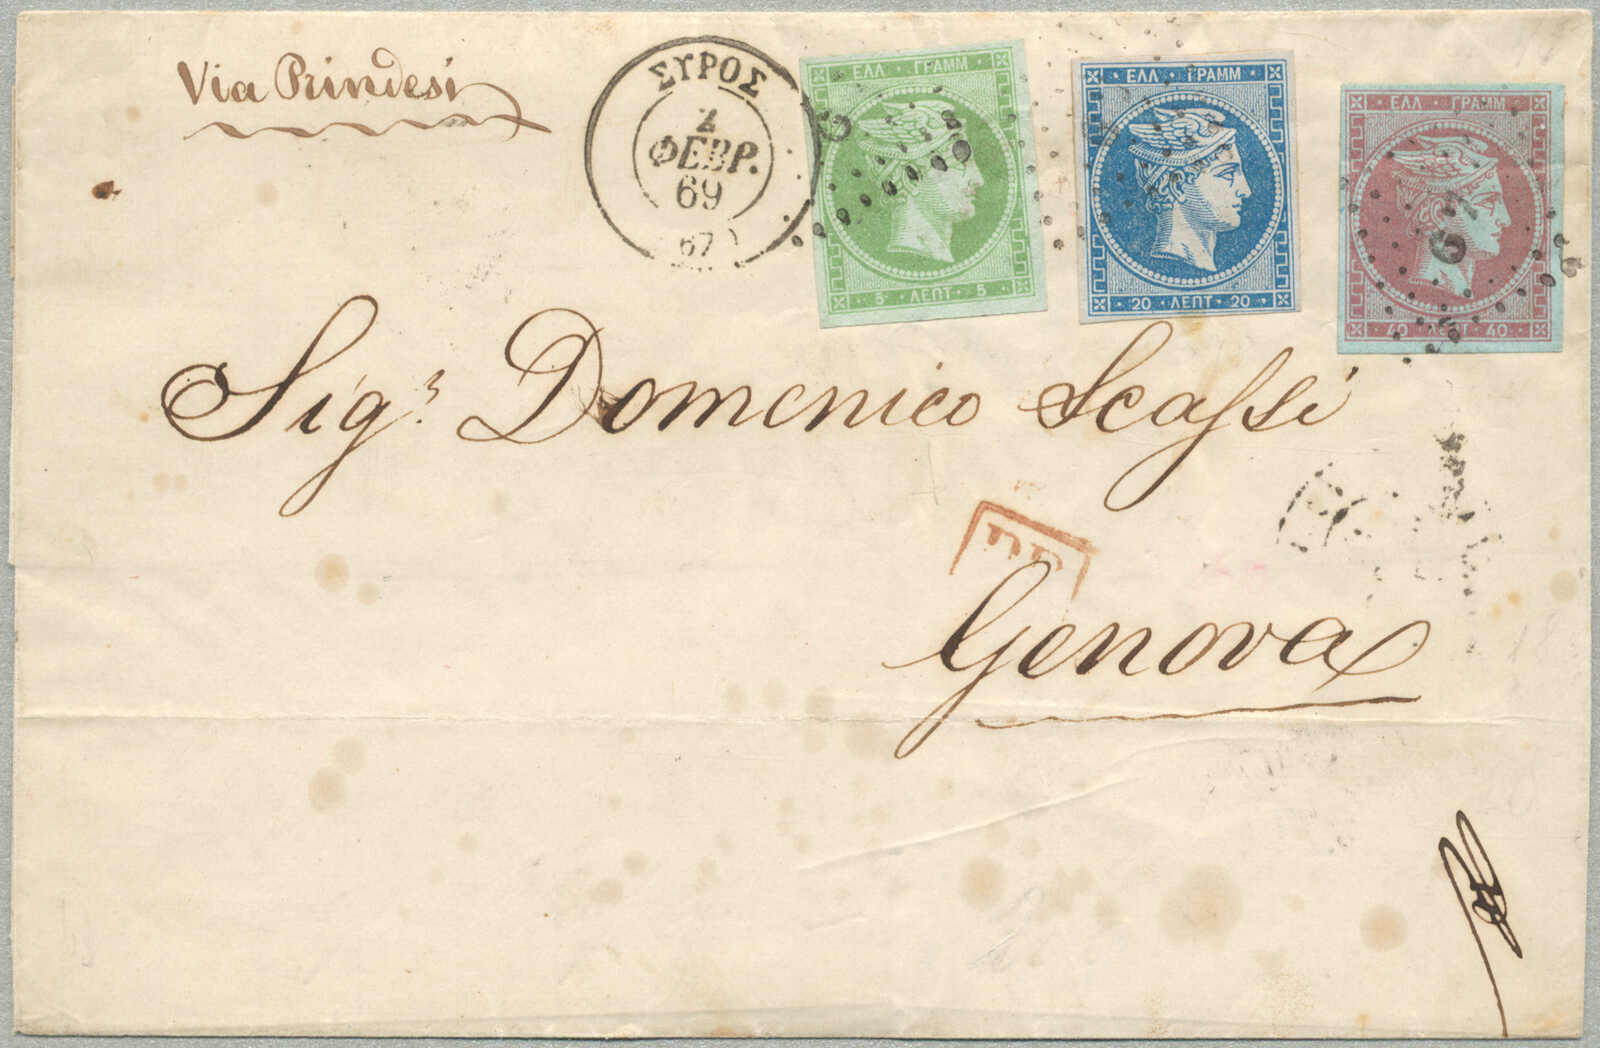 Via Prindesi
ΣΥΡΟΣ
2
ΦΕΒΡ.
69
67
ΕΛΛ · ΓΡΑΜΜ
5 · ΛΕΠΤ · 5
ΕΛΛ · ΓΡΑΜΜ
20 · ΛΕΠΤ · 20
ΕΛΛ · ΓΡΑΜΜ
40 · ΛΕΠΤ · 40
67
Sigr Domenico Scassi
Genova